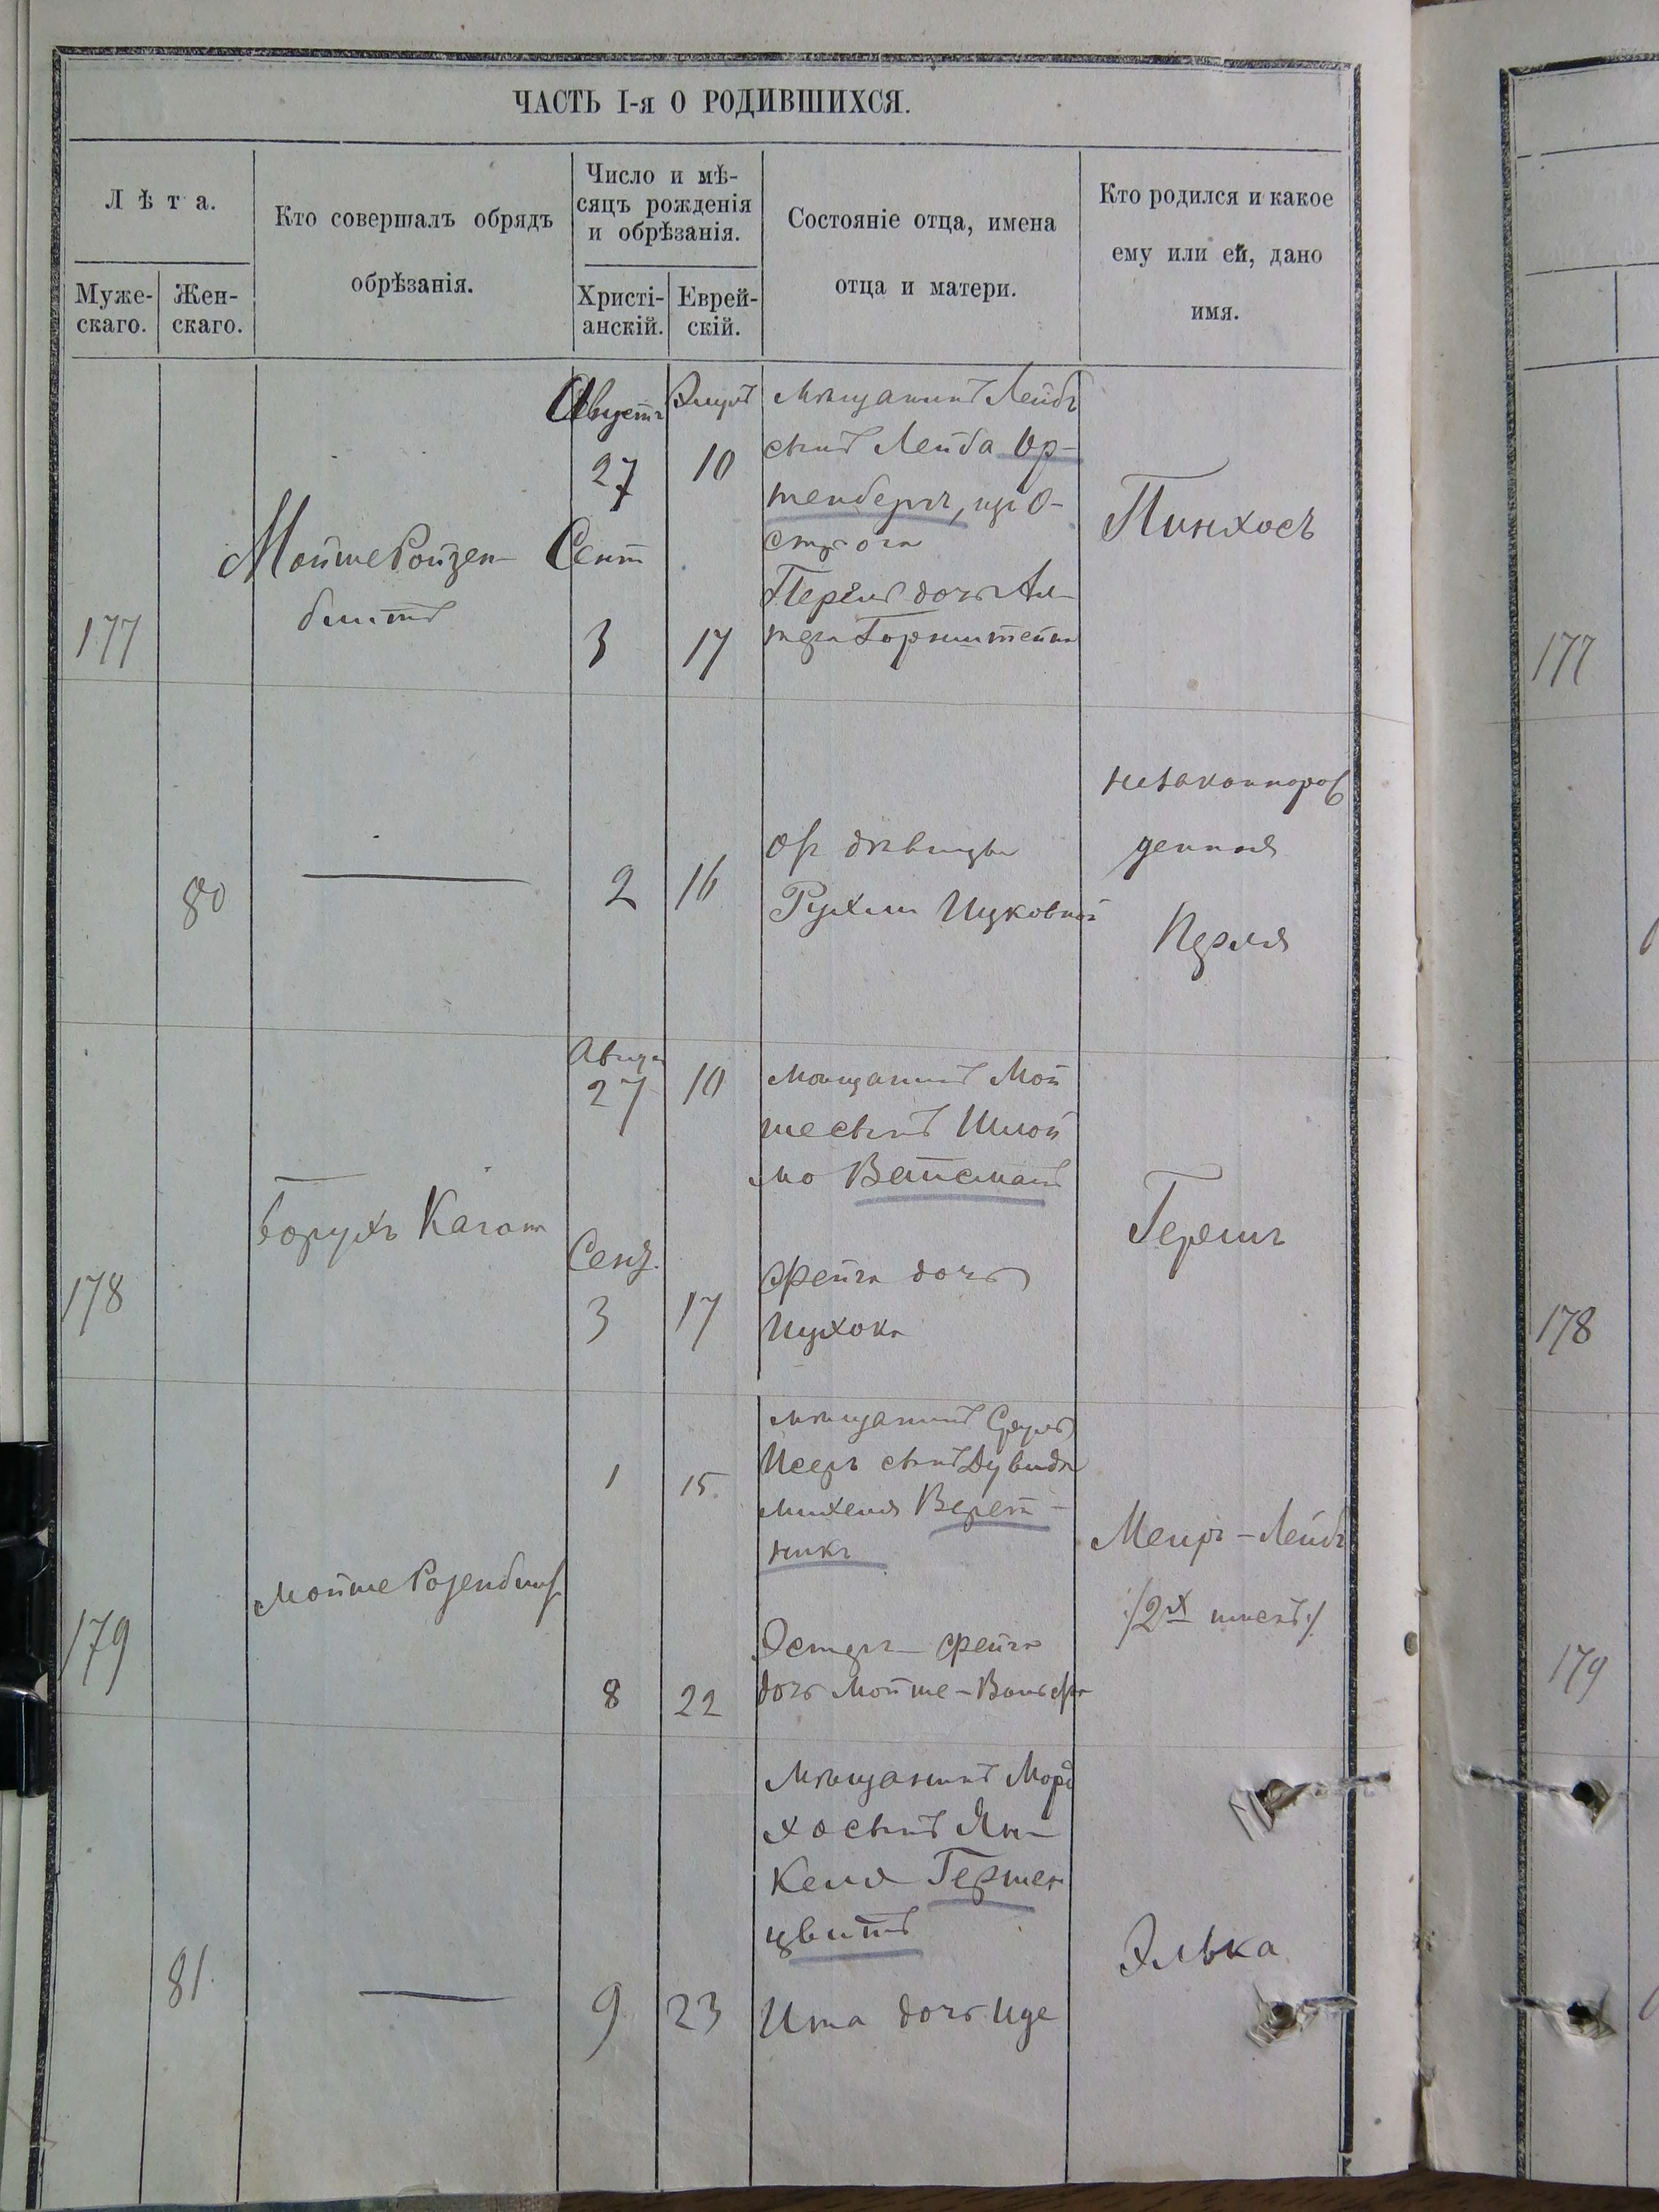 ЧАСТЬ I-я О РОДИВШИХСЯ.
Лѣта.
Муже-
скаго.
Жен-
скаго.
Кто совершалъ обрядъ
обрѣзанія.
Число и мѣ-
сяцъ рожденія
и обрѣзанія.
Христі-
анскій.
Еврей-
скій.
Состояніе отца, имена
отца и матери.
Кто родился и какое
ему или ей, дано
имя.
177
Мойше Ройзен-
блитъ
Августъ
27
Сент
3
Элулъ
10
17
Мѣщанинъ Лейбъ
сынъ Лейба Ор-
тенбергъ, изъ О-
строга
Перель дочь
Горнштейна
Пинхосъ
177
80
2
16
От дѣвицы
Рухли Ицковной
незаконнорож
денная
Перля
178
Борухъ Каган
Авгус
27
Сент.
3
10
17
Мѣщанинъ Мой
ше сынъ Шлой
мо Вайсманъ
Фейга дочь
Ицхока
Гершъ
178
179
Мойше Розенблит
1
8
15
22
Мѣщанинъ Сруль
Исеръ сынъ Дувидъ
Михеля Верет-
никъ
Эстеръ-Фейга
дочь Мойше-Вольфа
Меиръ-Лейбъ
/:2х именъ:/
179
81.
9
23
Мѣщанинъ Морд
хо сынъ Ян-
келя Гершен
цвитъ
Ита дочь Иде
Элька